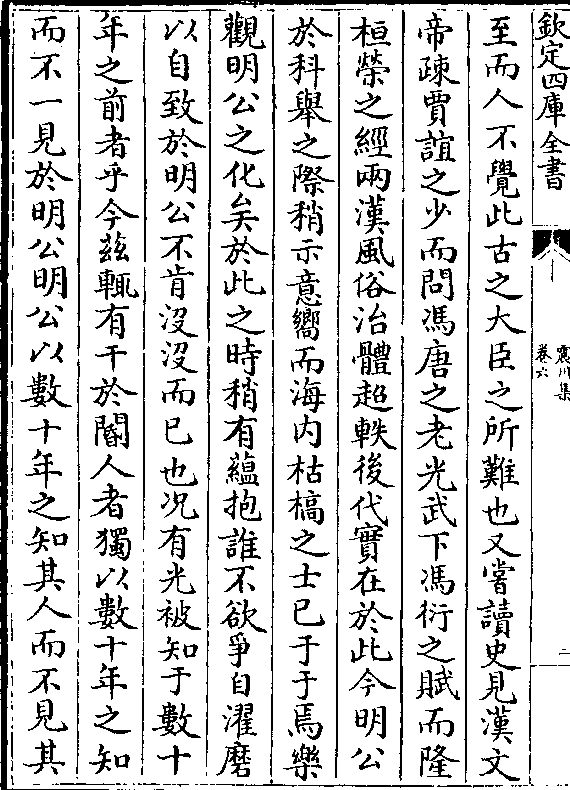 欽定四庫全書
震川集
卷六
二
至而人不覺此古之大臣之所難也又嘗讀史見漢文
帝疎賈誼之少而問馮唐之老光武下馮衍之賦而隆
桓榮之經兩漢風俗治體超軼後代實在於此今明公
於科舉之際稍示意嚮而海內枯槁之士已于于焉樂
觀明公之化矣於此之時稍有蘊抱誰不欲爭自濯磨
以自致於明公不肯沒沒而已也况有光被知于數十
年之前者乎今茲輒有干於閽人者獨以數十年之知
而不一見於明公明公以數十年之知其人而不見其